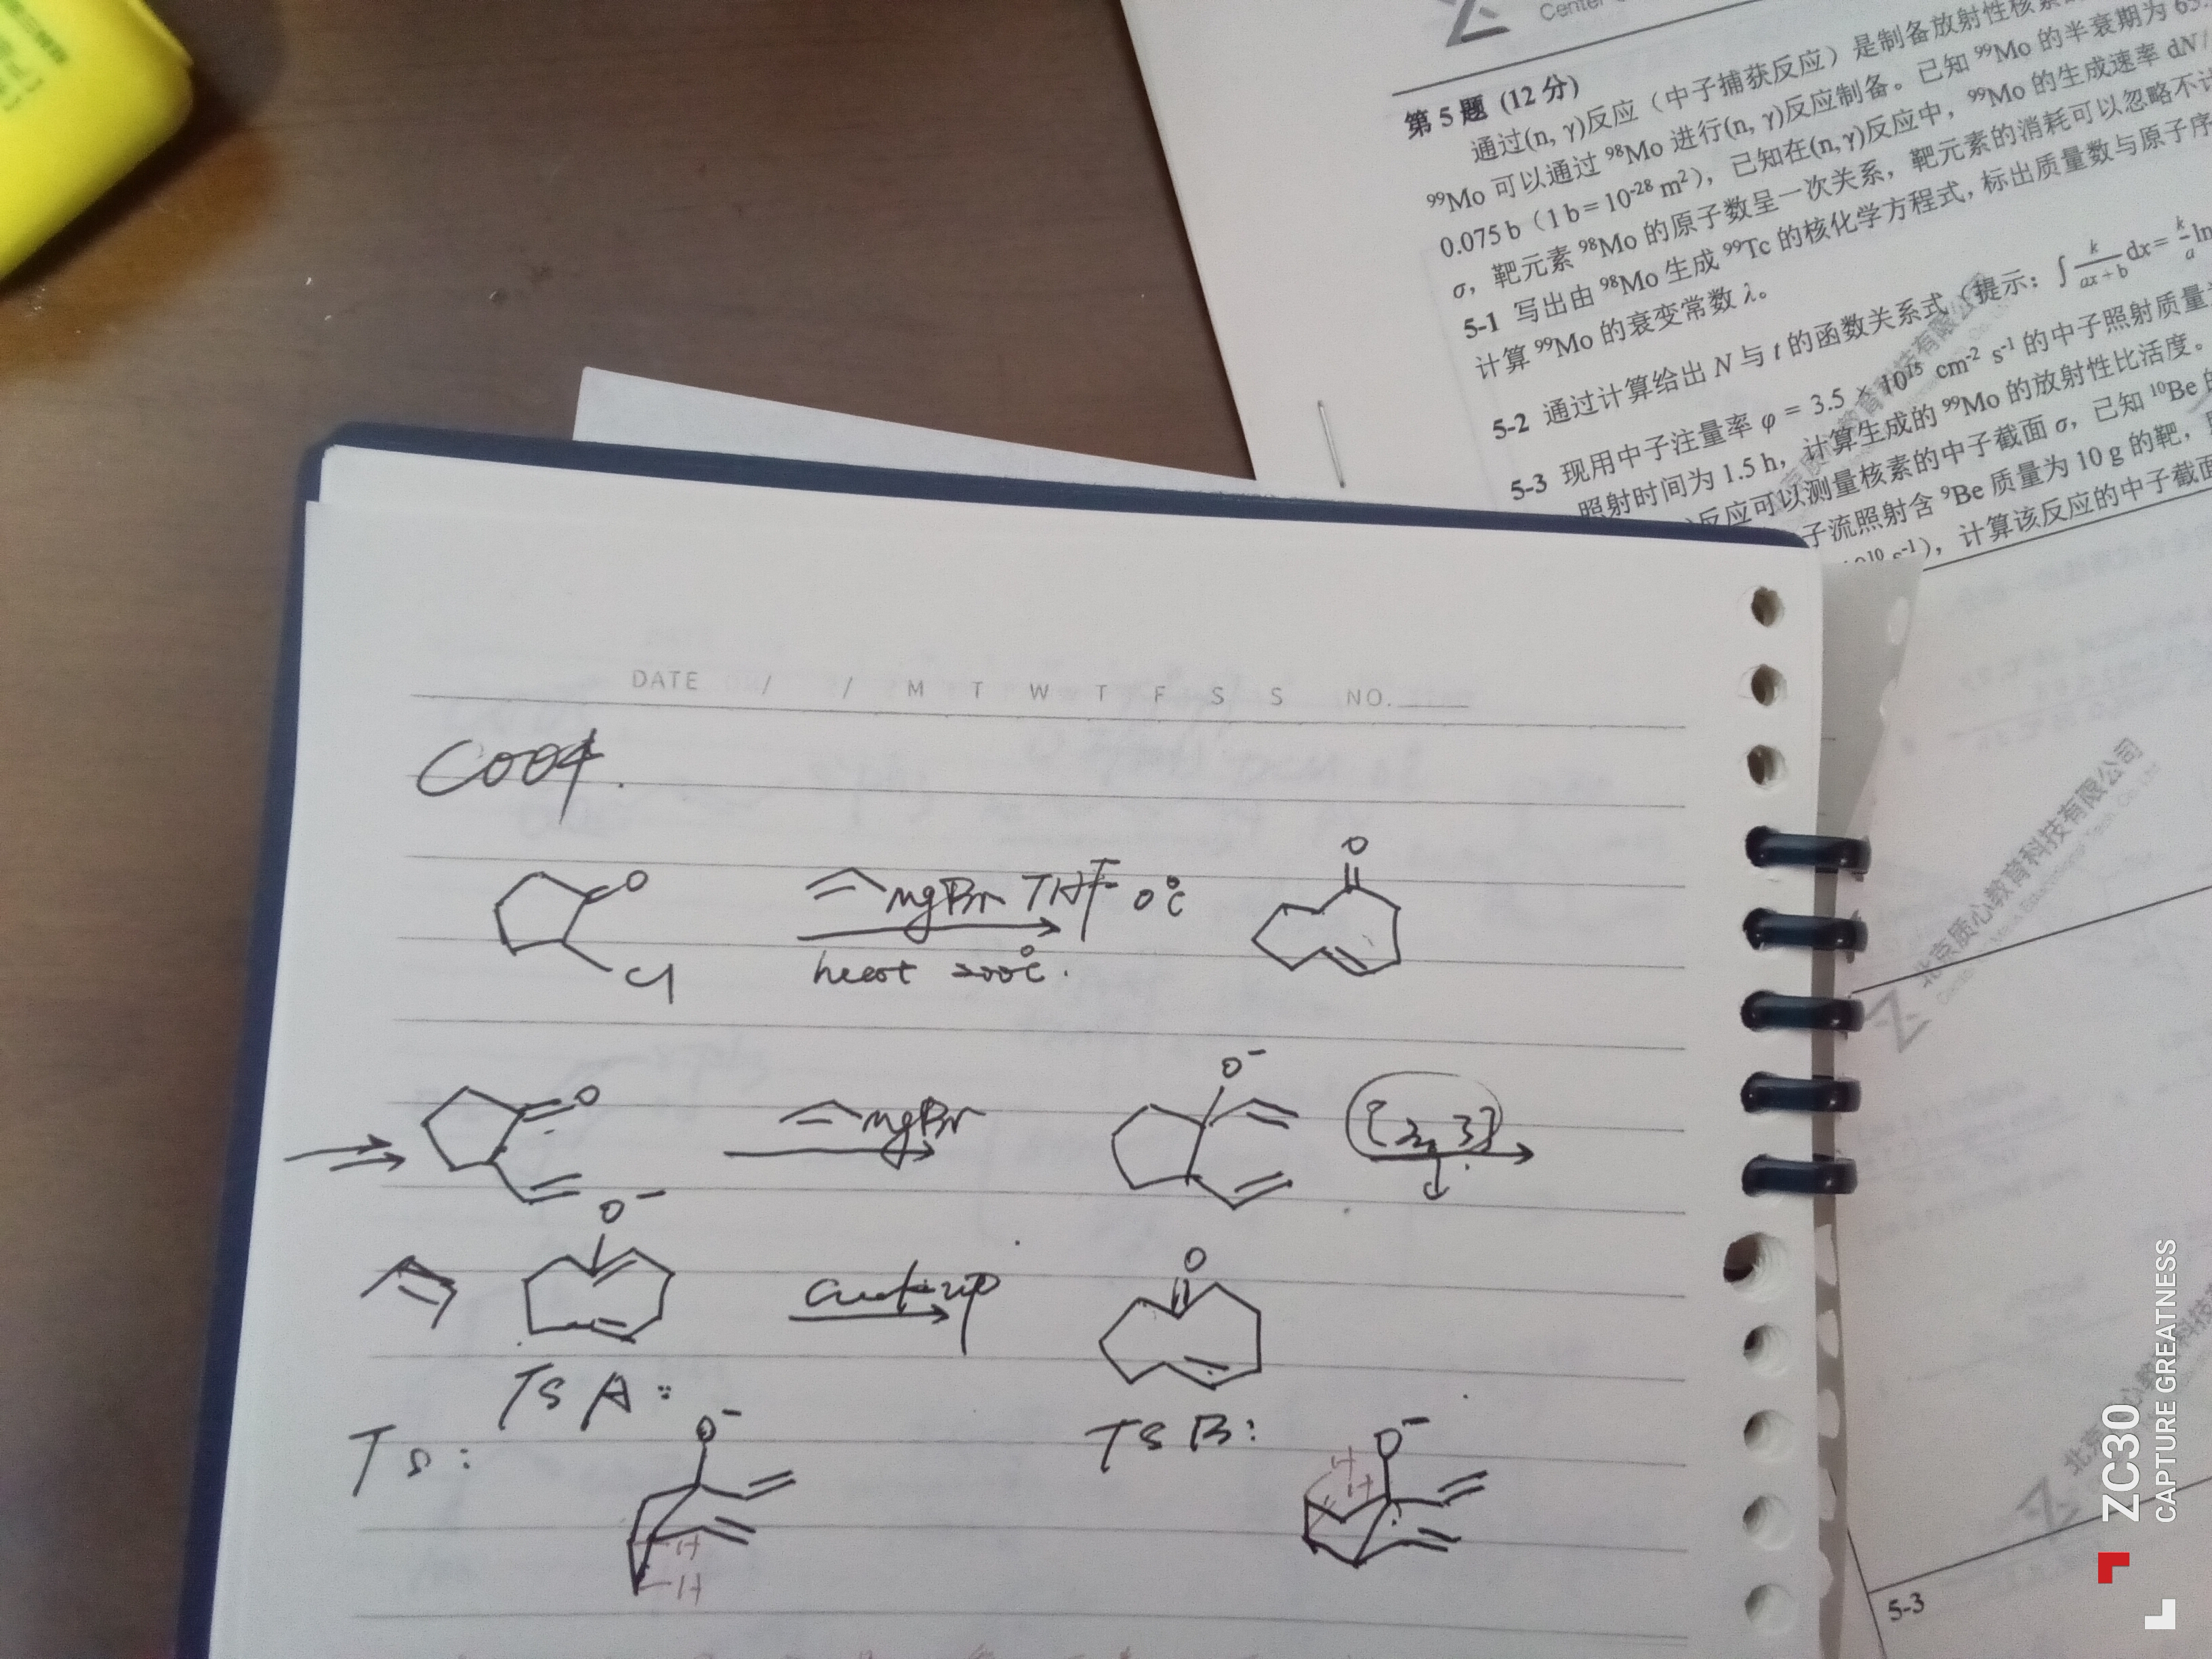 Center
第 5 题 (12 分)
通过(n, γ)反应（中子捕获反应）是制备放射性核素
⁹⁹Mo 可以通过 ⁹⁸Mo 进行(n, γ)反应制备。已知 ⁹⁹Mo 的半衰期为
0.075 b（1 b = 10⁻²⁸ m²），已知在(n,γ)反应中，⁹⁹Mo 的生成速率 dN/
σ，靶元素 ⁹⁸Mo 的原子数呈一次关系，靶元素的消耗可以忽略不计
5-1 写出由 ⁹⁸Mo 生成 ⁹⁹Tc 的核化学方程式，标出质量数与原子序
计算 ⁹⁹Mo 的衰变常数 λ。
5-2 通过计算给出 N 与 t 的函数关系式（提示：∫ k/(ax+b) dx = k/a ln
5-3 现用中子注量率 φ = 3.5 × 10¹⁵ cm⁻² s⁻¹ 的中子照射质量
照射时间为 1.5 h，计算生成的 ⁹⁹Mo 的放射性比活度。
反应可以测量核素的中子截面 σ，已知 ¹⁰Be 的
子流照射含 ⁹Be 质量为 10 g 的靶，
s⁻¹），计算该反应的中子截面
DATE / / M T W T F S S NO.
C004.
O
Cl
MgBr THF 0°C
heat 200°C.
O
O
MgBr
O⁻
[3,3]
O⁻
O
TS A:
TS B:
Ts:
O⁻
H
H
O⁻
H
H
北京质心教育科技有限公司
5-3
ZC30
CAPTURE GREATNESS